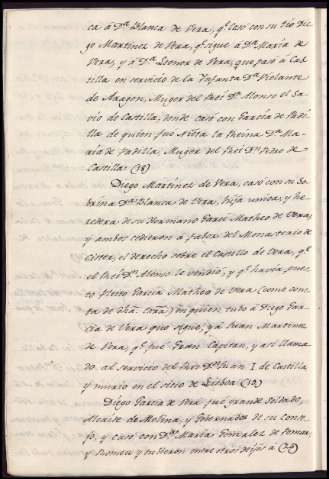 ca à Dª Blanca de Vera, qᵉ casó con su tio Die
go Martinez de Vera, qᵉ sigue à Dª Maria de
Vera, y à Dª Leonor de Vera, que pasó à Cas
tilla en servicio de la Infanta Dª Violante
de Aragon, Muger del Rei Dⁿ Alonso el Sa
vio de Castilla, donde casó con Garcia de Padi
lla de quien fue Nieta la Reina Dª Ma
ria de Padilla, Muger del Rei Dⁿ Pedro de
Castilla (18)
Diego Martinez de Vera, casó con su So
brina Dª Blanca de Vera, hija unica, y he
redera de su Hermano Garci Matheo de Vera,
y ambos cedieron à favor del Monasterio de
el derecho sobre el Castillo de Vera, qᵉ
el Rei Dⁿ Alonso le vendio, y qᵉ havia pues
to Pleito Garcia Matheo de Vera (como cons
ta de) en quien tubo à Diego Gar
cia de Vera que sigue, y à Juan Martinez
de Vera qᵉ fue Gran Capitan, y asi llama
do, al servicio del Rei Dⁿ Juan I de Castilla
y murio en el sitio de Lisboa (19)
Diego Garcia de Vera fue grande Soldado,
Alcaide de Molina, y Governador de su Conto
y casó con Dª Maria Gonzalez de
y Romeu y tuvieron entre otros hijos à (20)